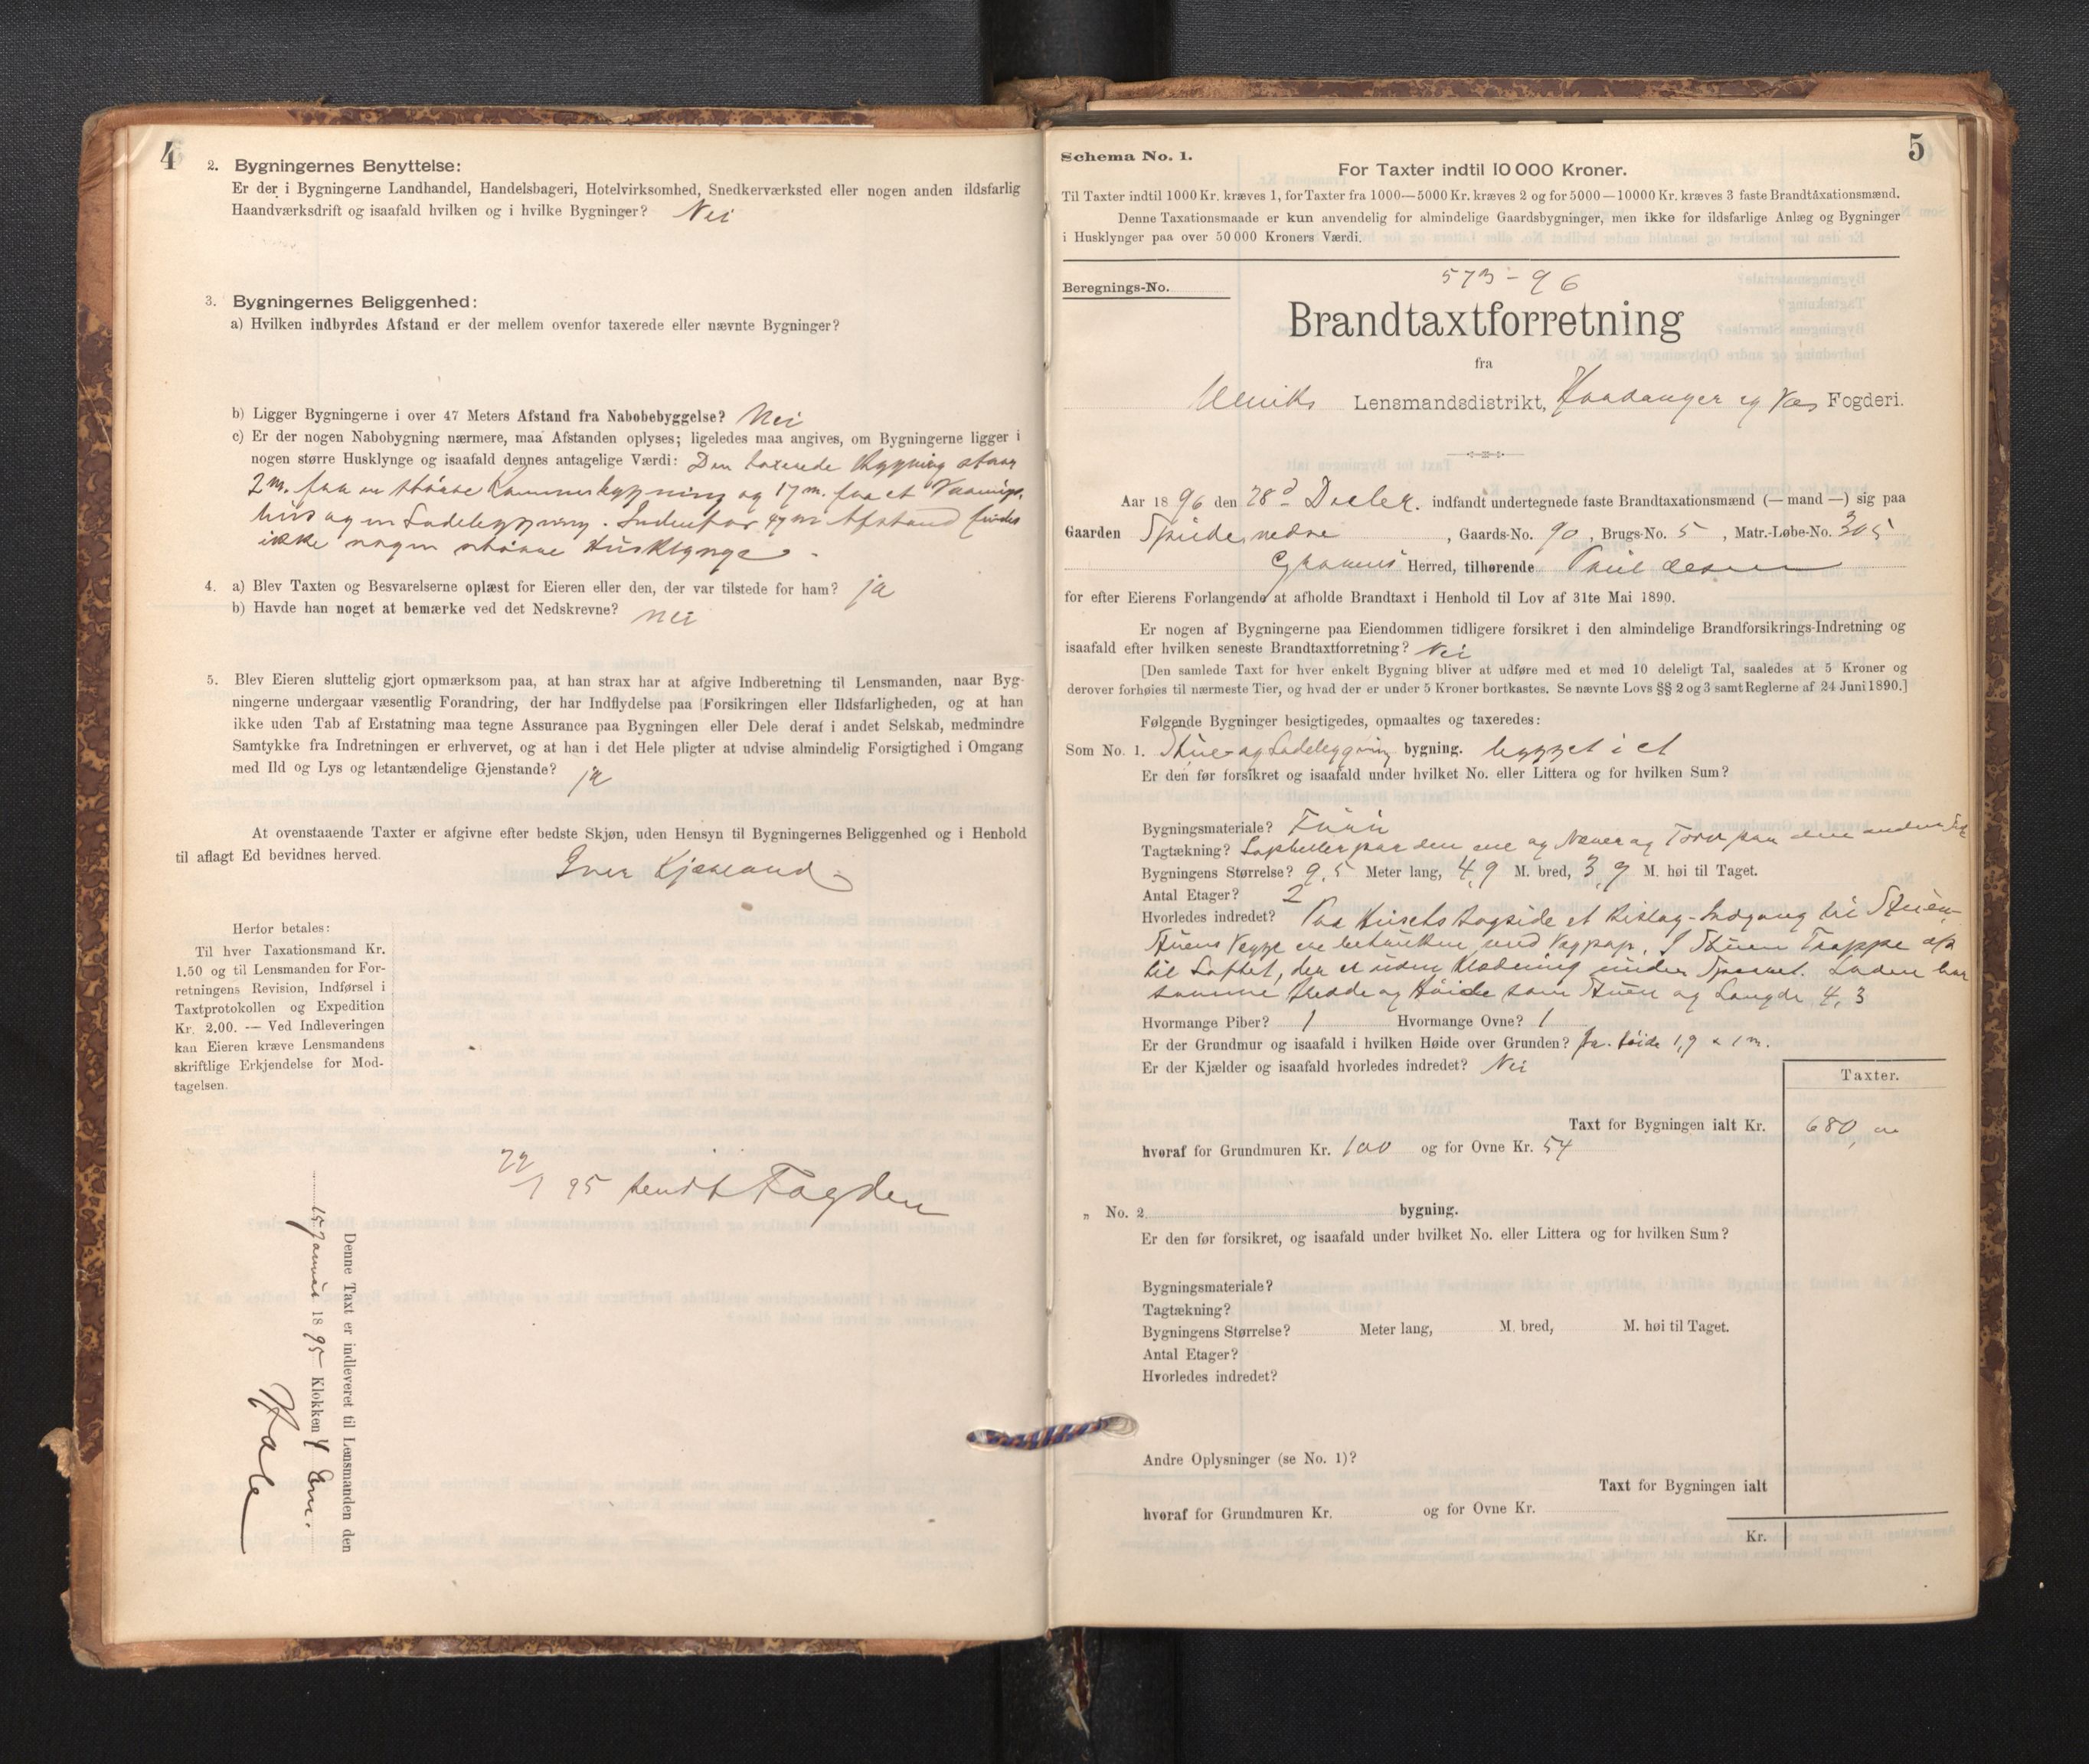 4
2. Bygningernes Benyttelse:
Er der i Bygningerne Landhandel, Handelsbageri, Hotelvirksomhed, Snedkerværksted eller nogen anden ildsfarlig
Haandværksdrift og isaafald hvilken og i hvilke Bygninger? Nei
3. Bygningernes Beliggenhed:
a) Hvilken indbyrdes Afstand er der mellem ovenfor taxerede eller nævnte Bygninger?
b) Ligger Bygningerne i over 47 Meters Afstand fra Nabobebyggelse? Nei
c) Er der nogen Nabobygning nærmere, maa Afstanden oplyses; ligeledes maa angives, om Bygningerne ligger i
nogen større Husklynge og isaafald dennes antagelige Værdi: Den taxerede Bygning staar
2 m. fra en større Kammerbygning og 17 m. fra et Vaanings-
hus og en Ladebygning. Indenfor 47 m Afstand findes
ikke nogen større Husklynge.
4. a) Blev Taxten og Besvarelserne oplæst for Eieren eller den, der var tilstede for ham? ja
b) Havde han noget at bemærke ved det Nedskrevne? nei
5. Blev Eieren sluttelig gjort opmærksom paa, at han strax har at afgive Indberetning til Lensmanden, naar Byg-
ningerne undergaar væsentlig Forandring, der har Indflydelse paa Forsikringen eller Ildsfarligheden, og at han
ikke uden Tab af Erstatning maa tegne Assurance paa Bygningen eller Dele deraf i andet Selskab, medmindre
Samtykke fra Indretningen er erhvervet, og at han i det Hele pligter at udvise almindelig Forsigtighed i Omgang
med Ild og Lys og letantændelige Gjenstande? ja
At ovenstaaende Taxter er afgivne efter bedste Skjøn, uden Hensyn til Bygningernes Beliggenhed og i Henhold
til aflagt Ed bevidnes herved.
Iver Kjæsland
Herfor betales:
Til hver Taxationsmand Kr.
1.50 og til Lensmanden for For-
retningens Revision, Indførsel i
Taxtprotokollen og Expedition
Kr. 2.00. — Ved Indleveringen
kan Eieren kræve Lensmandens
skriftlige Erkjendelse for Mod-
tagelsen.
22/1 95 sendt Fogden
Denne Taxt er indleveret til Lensmanden den
15 Januar 1895 Klokken 4 Em.
5
Schema No. 1.
For Taxter indtil 10 000 Kroner.
Til Taxter indtil 1000 Kr. kræves 1, for Taxter fra 1000—5000 Kr. kræves 2 og for 5000—10000 Kr. kræves 3 faste Brandtaxationsmænd.
Denne Taxationsmaade er kun anvendelig for almindelige Gaardsbygninger, men ikke for ildsfarlige Anlæg og Bygninger
i Husklynger paa over 50 000 Kroners Værdi.
573-96
Beregnings-No.
Brandtaxtforretning
fra
Ulviks Lensmandsdistrikt, Hardanger og Vos Fogderi.
Aar 1896 den 28d Decbr. indfandt undertegnede faste Brandtaxationsmænd (— mand —) sig paa
Gaarden Spilde, nedre, Gaards-No. 90, Brugs-No. 5, Matr.-Løbe-No. 305
Gravens Herred, tilhørende Poul
for efter Eierens Forlangende at afholde Brandtaxt i Henhold til Lov af 31te Mai 1890.
Er nogen af Bygningerne paa Eiendommen tidligere forsikret i den almindelige Brandforsikrings-Indretning og
isaafald efter hvilken seneste Brandtaxtforretning? Nei
[Den samlede Taxt for hver enkelt Bygning bliver at udføre med et med 10 deleligt Tal, saaledes at 5 Kroner og
derover forhøies til nærmeste Tier, og hvad der er under 5 Kroner bortkastes. Se nævnte Lovs §§ 2 og 3 samt Reglerne af 24 Juni 1890.]
Følgende Bygninger besigtigedes, opmaaltes og taxeredes:
Som No. 1. Stue- og Ladebygning bygning. bygget i et
Er den før forsikret og isaafald under hvilket No. eller Littera og for hvilken Sum?
Bygningsmateriale? Furu
Tagtækning? paa den ene og Næver og Torv paa den anden Side
Bygningens Størrelse? 9,5 Meter lang, 4,9 M. bred, 3,9 M. høi til Taget.
Antal Etager? 2
Hvorledes indredet? Paa Husets Bagside et Bislag-Indgang til Stuen.
Stuens Vegge ere betrukne med Vegpap. I Stuen Trappe op
til Loftet, der er uden Klædning under Sperret. Laden har
samme Bredde og Høide som Stuen og Længde 4,3
Hvormange Piber? 1 Hvormange Ovne? 1
Er der Grundmur og isaafald i hvilken Høide over Grunden? Ja. Høide 1,9 x 1 m.
Er der Kjælder og isaafald hvorledes indredet? Nei
Taxter.
Taxt for Bygningen ialt Kr. 680,
hvoraf for Grundmuren Kr. 100 og for Ovne Kr. 54
„ No. 2 bygning.
Er den før forsikret, og isaafald under hvilket No. eller Littera og for hvilken Sum?
Bygningsmateriale?
Tagtækning?
Bygningens Størrelse? Meter lang, M. bred, M. høi til Taget.
Antal Etager?
Hvorledes indredet?
Andre Oplysninger (se No. 1)?
Taxt for Bygningen ialt
hvoraf for Grundmuren Kr. og for Ovne Kr.
Kr.